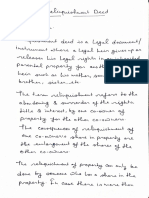 Relinquishment Deed
Relinquishment deed is a legal document/
instrument where a legal heir gives up or
releases his legal rights in
parental property for another legal
heir such as his mother,
brother, sister etc.
The term relinquishment refers to the
abandoning & surrender of the rights,
title & interest, by one co-owner
of property in favour of the other co-owners.
The consequences of relinquishment of
one co-owner share in the property are
the enlargement of the shares of the
other co-owners
The relinquishment of property can only be
done by someone who has a share in the
property. In case there is more than